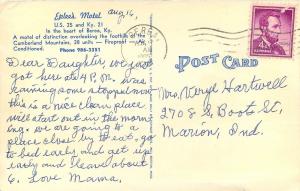 Eplee's Motel
U.S. 25 and Ky. 21
In the heart of Berea, Ky.
A motel of distinction overlooking the foothills of the
Cumberland Mountains, 28 units — Fireproof —
Conditioned.
Phone 986-3281
Aug 16,
Dear Daughter, we just
got here at 4 P.M. was
leaving some stops
this is a nice clean place
will start out in the morn
ing. we are going to a
place close by to eat, go
to bed early and get up
early and leave about
6. Love Mama.
POST CARD
4¢
Mrs. Neryl Hartwell
2708 S. Boots St,
Marion, Ind.